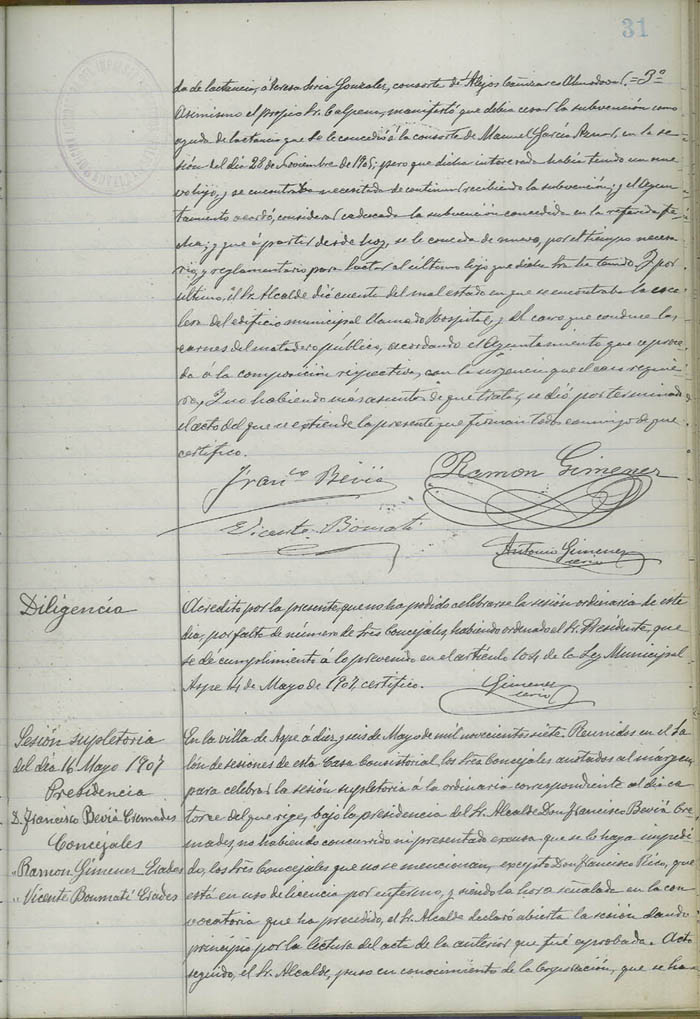 31
da de lactancia, á Teresa Soria Gonzalez, consorte de Alejos Cañizares Almodovar. = 3º
Asimismo el propio Sr. Calpena, manifestó que debia cesar la subvención como
ayuda de lactancia que se le concedió á la consorte de Manuel García, en la se-
sión del dia 28 de Noviembre de 1905; pero que dicha interesada había tenido un nue-
vo hijo, y se encontraba necesitada de continuar recibiendo la subvención; y el Ayun-
tamiento acordó, considerar caducada la subvención concedida en la referida fe-
cha; y que á partir desde hoy, se le conceda de nuevo, por el tiempo necesa-
rio, y reglamentario para lactar al último hijo que dicha Sra. ha tenido. Y por
último, el Sr. Alcalde dió cuente del mal estado en que se encontraba la esca-
lera del edificio municipal llamado Hospital, y el carro que conduce las
carnes del matadero público, acordando el Ayuntamiento que se proce-
da á la composición respectiva, con la urgencia que el caso requie-
ra, Y no habiendo más asuntos de que tratar, se dió por terminado
el acto del que se extiende la presente que firman todos conmigo de que
certifico.
Fran.co Beviá
Ramon Gimenez
Vicente Boumati
Antonio Gimenez
srio
Diligencia
Acredito por la presente, que no ha podido celebrarse la sesión ordinaria de este
dia, por falta de número de Sres Concejales, habiendo ordenado el Sr. Presidente, que
se dé cumplimiento á lo prevenido en el artículo 104 de la Ley Municipal.
Aspe 14 de Mayo de 1907, certifico.
Gimenez
srio
Sesión supletoria
del dia 16 Mayo 1907
Presidencia
D. Francisco Beviá Cremades
Concejales
" Ramon Gimenez Erades
" Vicente Boumatí Erades
En la villa de Aspe á diez y seis de Mayo de mil novecientos siete. Reunidos en el Sa-
lón de sesiones de esta Casa Consistorial, los Sres Concejales anotados al márgen,
para celebrar la sesión supletoria á la ordinaria correspondiente al dia ca-
torce del que rige, bajo la presidencia del Sr. Alcalde Don Francisco Beviá Cre-
mades, no habiendo concurrido ni presentado excusa que se lo haya impedi-
do, los Sres Concejales que no se mencionan, excepto Don Francisco Rico, que
está en uso de licencia por enfermo, y siendo la hora señalada en la con-
vocatoria que ha precedido, el Sr. Alcalde declaró abierta la sesión dando
principio por la lectura del acta de la anterior que fué aprobada. Acto
seguido, el Sr. Alcalde, puso en conocimiento de la Corporación, que se ha-